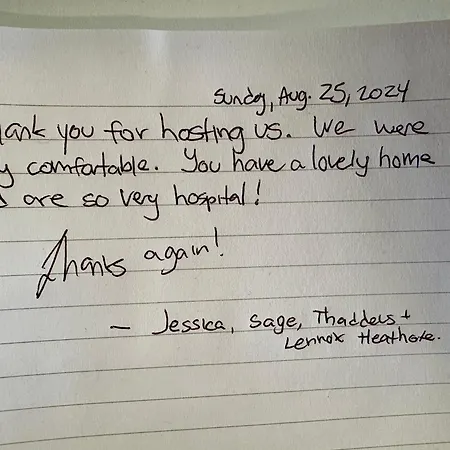 Sunday, Aug. 25, 2024
ank you for hosting us. We were
y comfortable. You have a lovely home
are so very hospital!
Thanks again!
— Jessica, Sage, Thaddeus +
Lennox